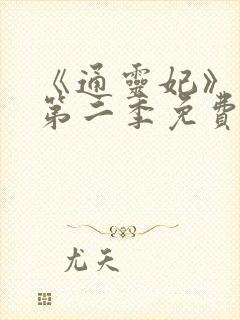 《通靈妃》
第二季免費
尤天